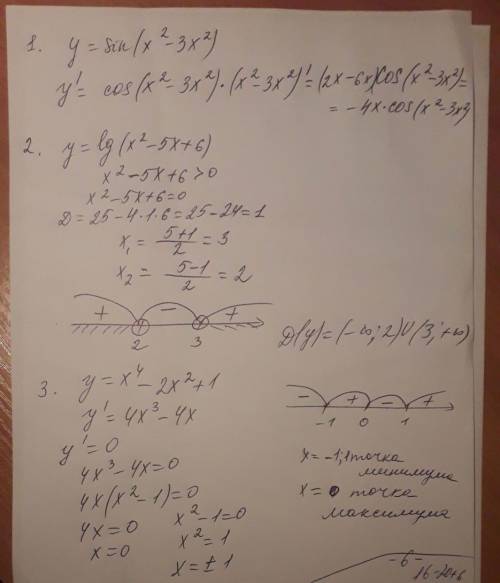 1. y = sin(x² - 3x²)
y' = cos(x² - 3x²)·(x² - 3x²)' = (2x - 6x)cos(x² - 3x²) =
= -4x·cos(x² - 3x²)
2. y = lg(x² - 5x + 6)
x² - 5x + 6 > 0
x² - 5x + 6 = 0
D = 25 - 4·1·6 = 25 - 24 = 1
x₁ = (5+1)/2 = 3
x₂ = (5-1)/2 = 2
+ - +
2 3
D(y) = (-∞; 2) U (3; +∞)
3. y = x⁴ - 2x² + 1
y' = 4x³ - 4x
y' = 0
4x³ - 4x = 0
4x(x² - 1) = 0
4x = 0 x² - 1 = 0
x = 0 x² = 1
x = ± 1
- + - +
-1 0 1
x = -1; 1 точка
минимума
x = 0 точка
максимума
-6-
16-20+6